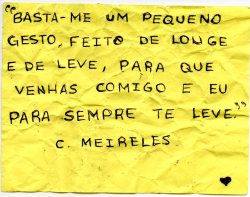 "BASTA-ME UM PEQUENO
GESTO, FEITO DE LONGE
E DE LEVE, PARA QUE
VENHAS COMIGO E EU
PARA SEMPRE TE LEVE."
C. MEIRELES